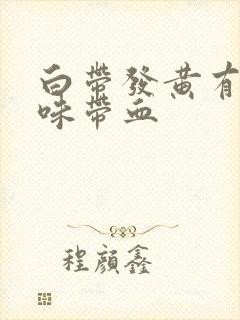 白帶發黃有
味帶血
程顔鑫